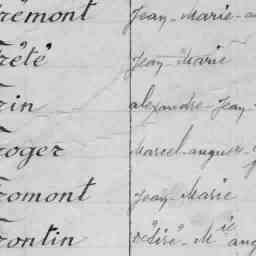 rémont Jean-Marie-au
rété Jean-Marie
rin alexandre-Jean-
roger Marcel-auguste-
romont Jean-Marie
rontin Désiré-Mie aug